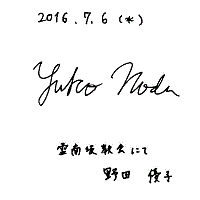 2016. 7. 6 (水)
Yuko Noda
霊南坂教会にて
野田 優子